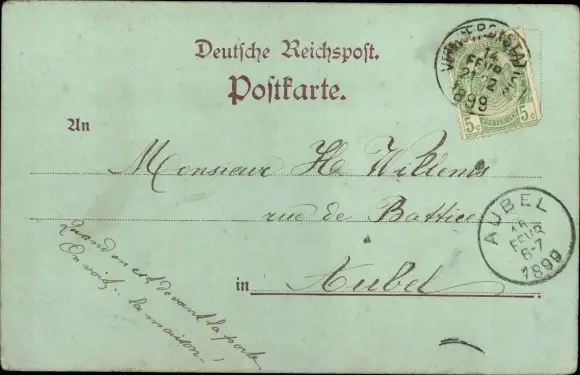 Deutsche Reichspost.
Postkarte.
14
FEVR
2
1899
5c 5c
An
Monsieur H Willems
rue de Battice
in Aubel
AUBEL
16
FEVR
6-7
1899
Quand on est devant la porte
On voit la maison!